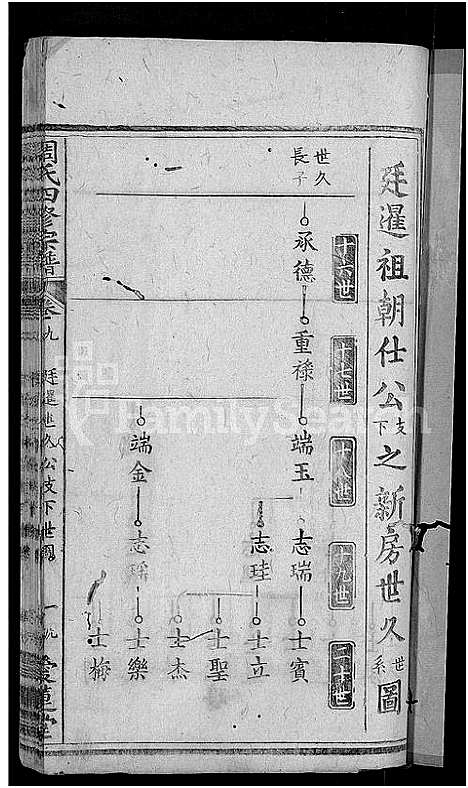 廷暹祖朝仕公支下之新房世久世系圖
十六世
十七世
十八世
十九世
二十世
世久長子
承德
重祿
端玉
志瑞
士賓
志珪
士立
士聖
士杰
端金
志瑤
士樂
士梅
周氏四修宗譜
卷九
廷暹世久公支下世圖
一九
愛蓮堂
FamilySearch